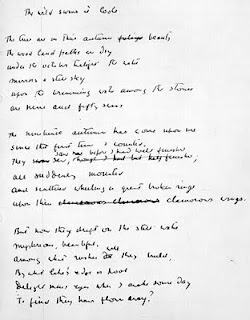 The wild swans at Coole
The trees are in their autumn foliage beauty
The wood land paths are dry
under the october twilight the water
mirrors a still sky
upon the brimming water among the stones
are nine and fifty swans
The nineteenth autumn has come upon me
since I first count
saw before I had well finished
They
all suddenly mount
And scatter wheeling in great broken rings
upon their clamorous wings.
But now they drift on the still water
mysterious, beautiful,
among what rushes will they build,
By what lake's edge or pool
Delight men's eyes when I awake some day
To find they have flown away?